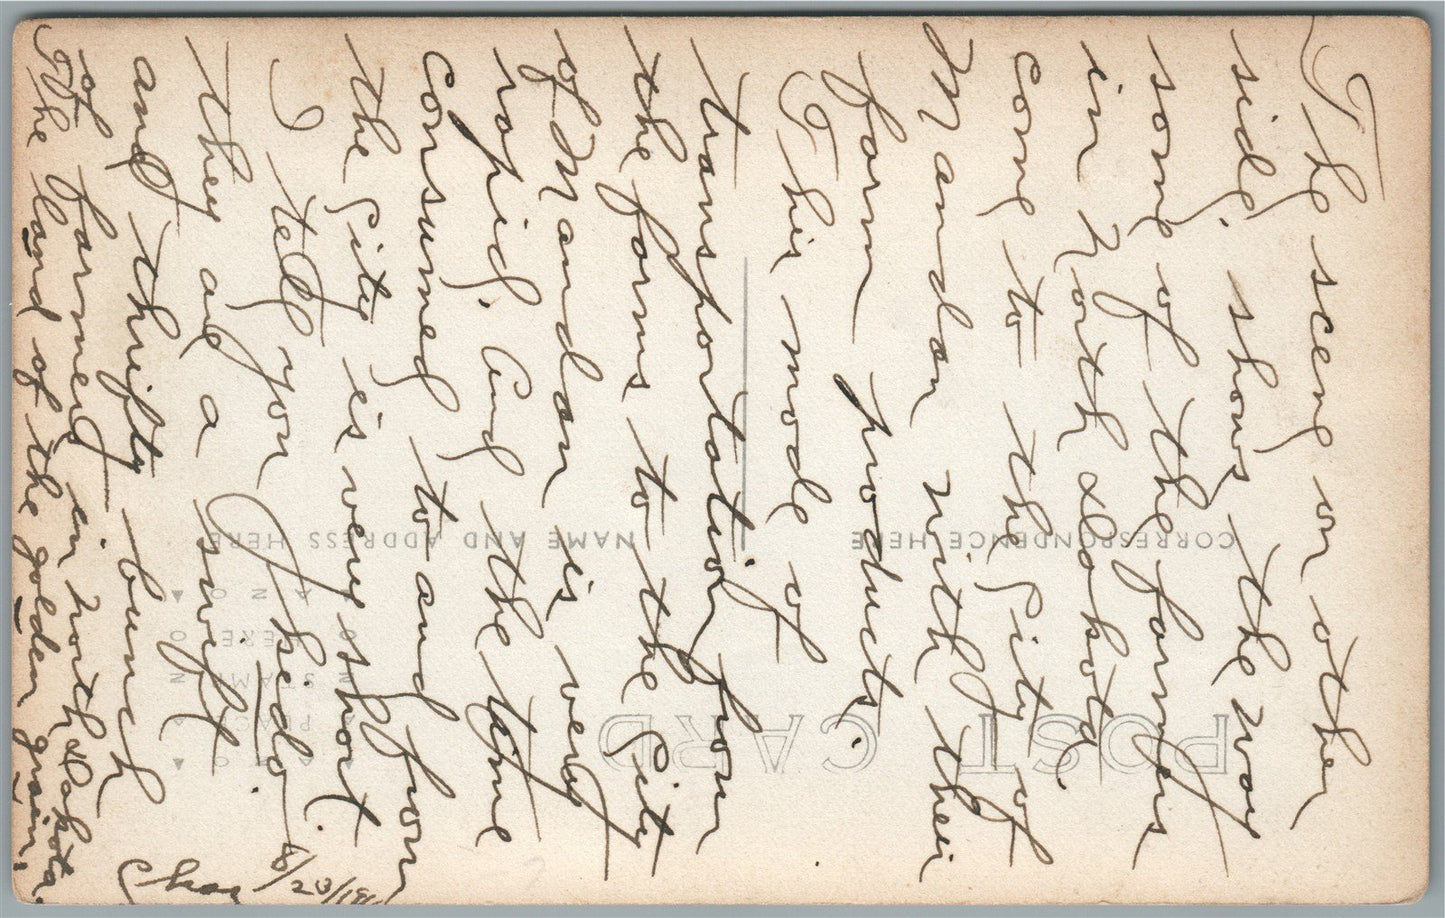 The scene on other
side, shows the way
some of the farmers
in North Dakota
come to the City of
Mandan with their
farm products.
This mode of
transportation from
the farms to the City
of Mandan is very
rapid. And the time
consumed to and from
the City is very short.
I tell you Phido.
they are a swift
and thrifty bunch
of farmers in North Dakota.
The land of the golden grain.
Chas
8/23/191
POST CARD
CORRESPONDENCE HERE
NAME AND ADDRESS HERE
PLACE
STAMP
HERE